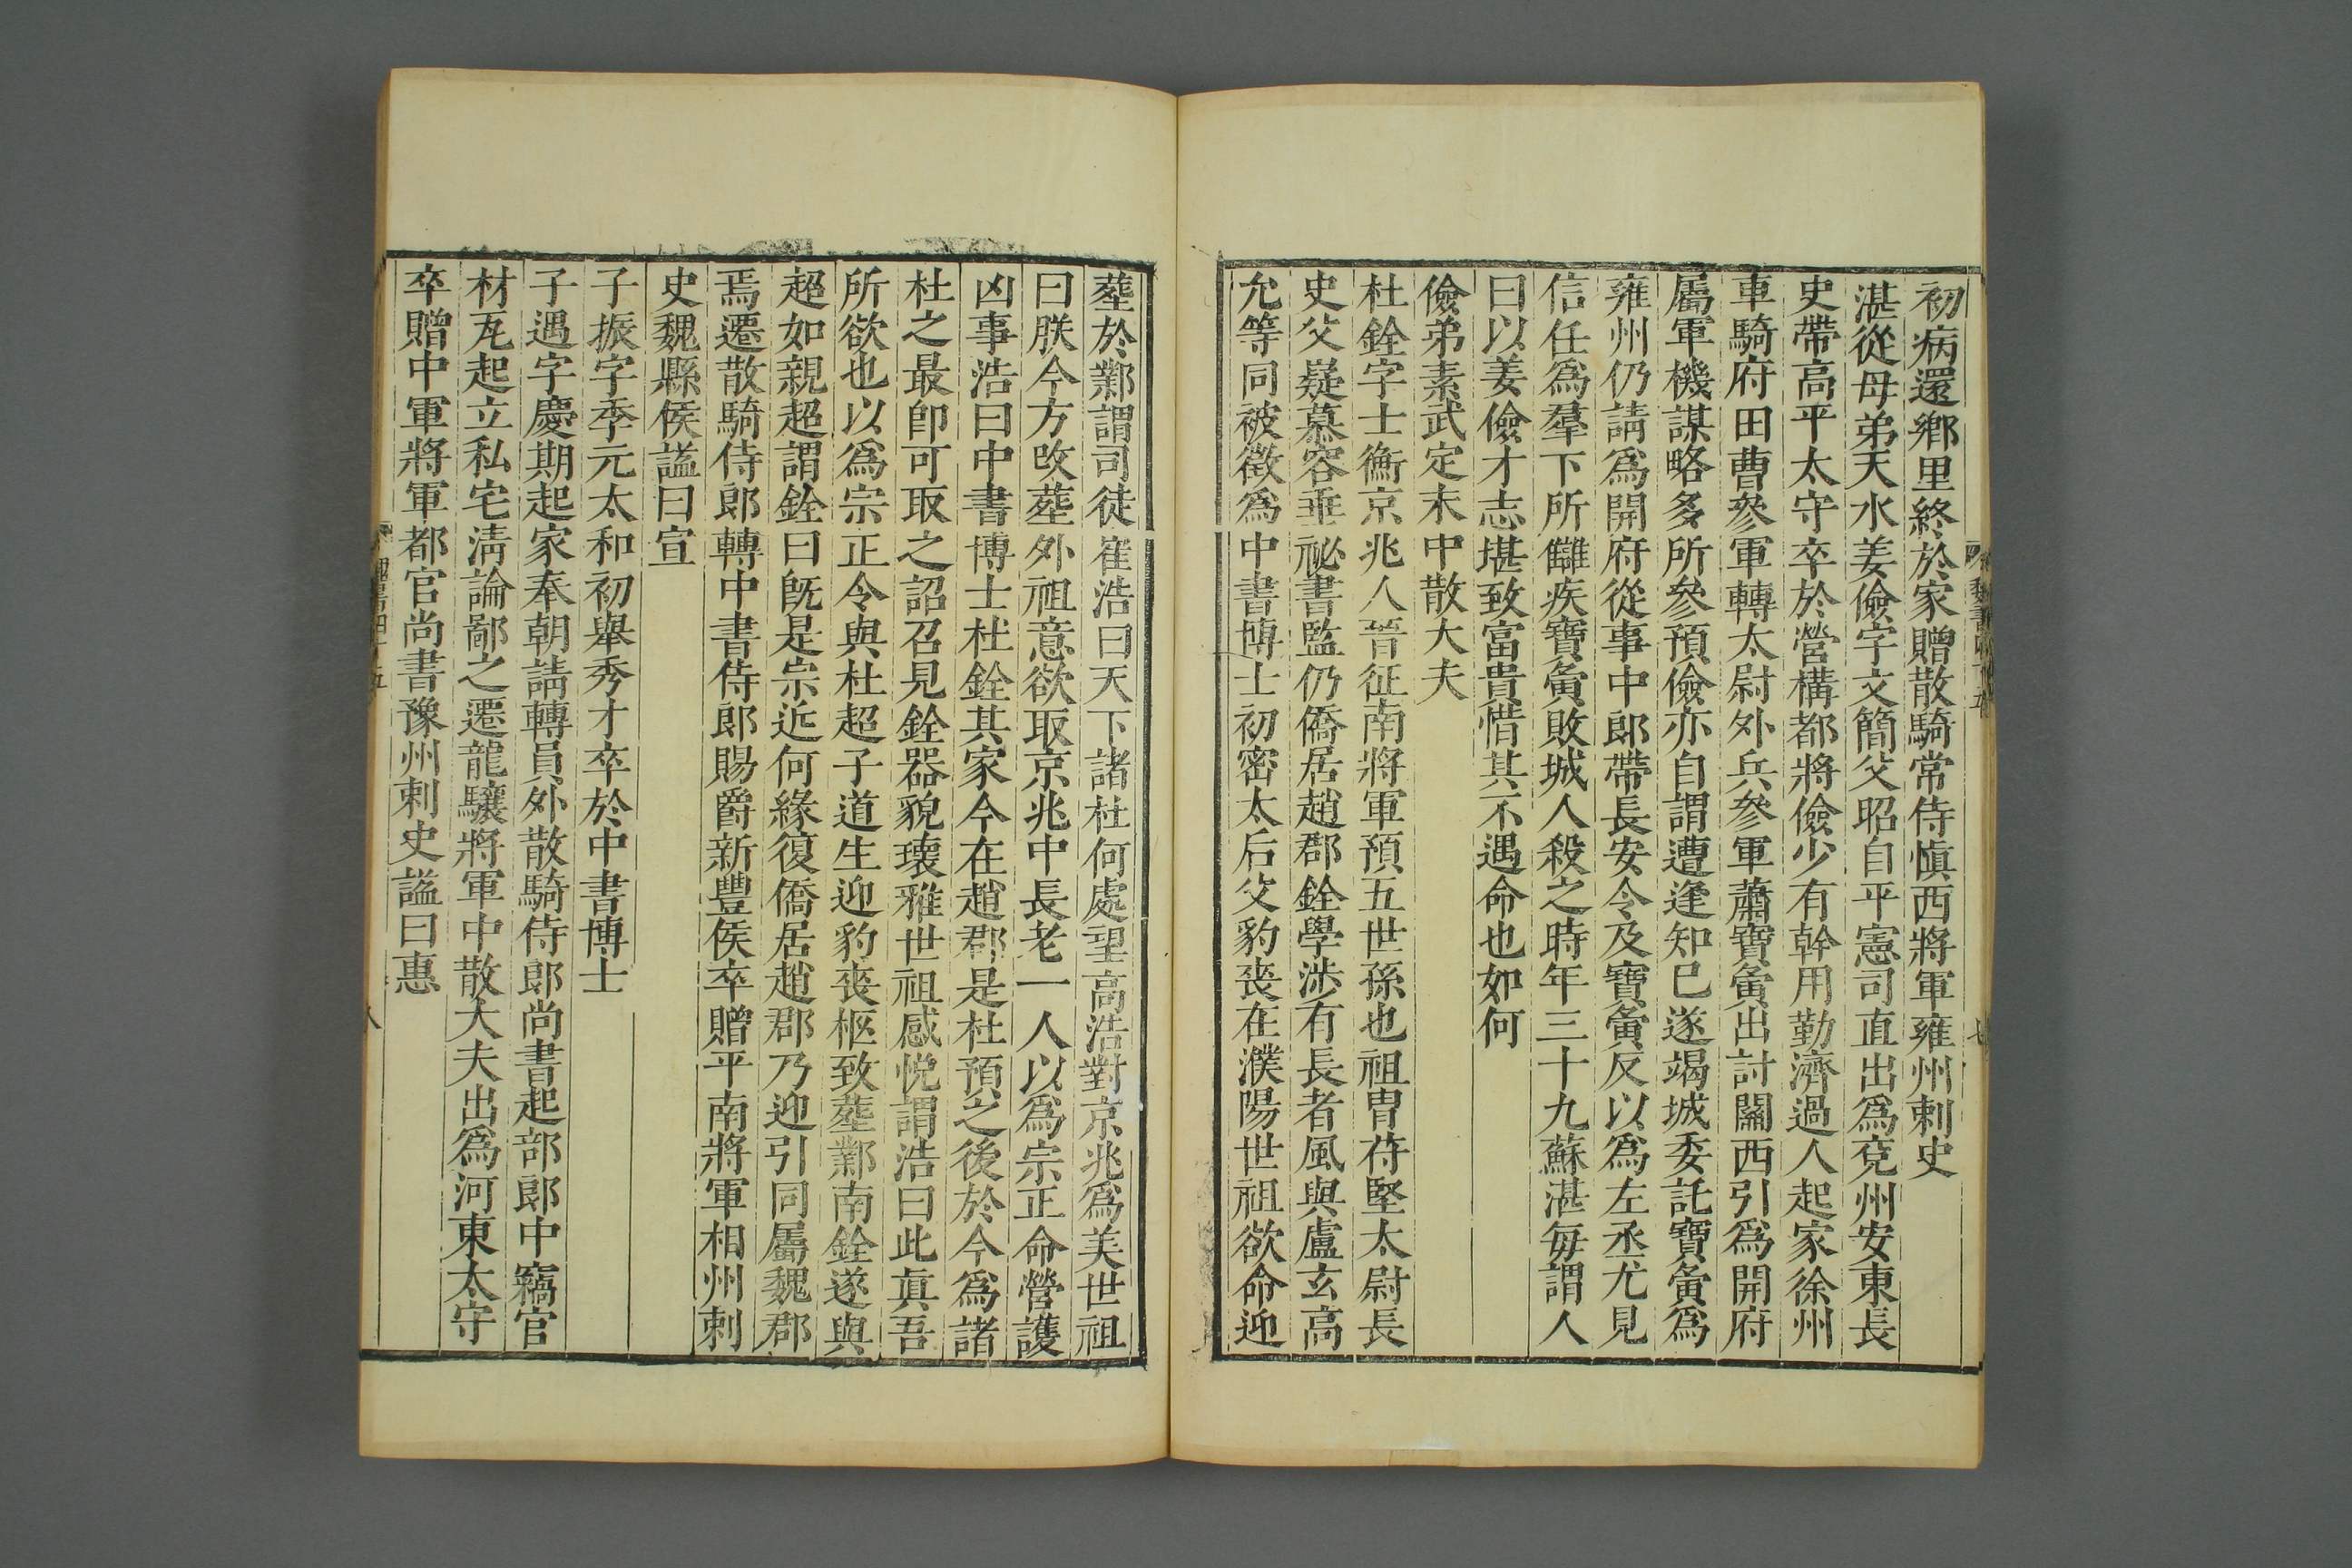 初病還鄉里終於家贈散騎常侍愼西將軍雍州刺史
湛從母弟天水姜儉字文簡父昭自平憲司直出爲兗州安東長
史帶高平太守卒於營構都將儉少有幹用勤濟過人起家徐州
車騎府田曹參軍轉太尉外兵參軍蕭寶夤出討關西引爲開府
屬軍機謀略多所參預儉亦自謂遭逢知已遂竭城委託寶夤爲
雍州仍請爲開府從事中郎帶長安令及寶夤反以爲左丞尤見
信任爲羣下所讎疾寶夤敗城人殺之時年三十九蘇湛每謂人
曰以姜儉才志堪致富貴惜其不遇命也如何
儉弟素武定末中散大夫
杜銓字士衡京兆人晉征南將軍預五世孫也祖胄苻堅太尉長
史父嶷慕容垂祕書監仍僑居趙郡銓學涉有長者風與盧玄高
允等同被徵爲中書博士初密太后父豹喪在濮陽世祖欲命迎
葬於鄴謂司徒崔浩曰天下諸杜何處望高浩對京兆爲美世祖
曰朕今方改葬外祖意欲取京兆中長老一人以爲宗正命營護
凶事浩曰中書博士杜銓其家今在趙郡是杜預之後於今爲諸
杜之最卽可取之詔召見銓器貌瓌雅世祖感悅謂浩曰此眞吾
所欲也以爲宗正令與杜超子道生迎豹喪柩致葬鄴南銓遂與
超如親超謂銓曰旣是宗近何緣復僑居趙郡乃迎引同屬魏郡
焉遷散騎侍郎轉中書侍郎賜爵新豐侯卒贈平南將軍相州刺
史魏縣侯謚曰宣
子振字季元太和初舉秀才卒於中書博士
子遇字慶期起家奉朝請轉員外散騎侍郎尚書起部郎中竊官
材瓦起立私宅淸論鄙之遷龍驤將軍中散大夫出爲河東太守
卒贈中軍將軍都官尚書豫州刺史謚曰惠
八